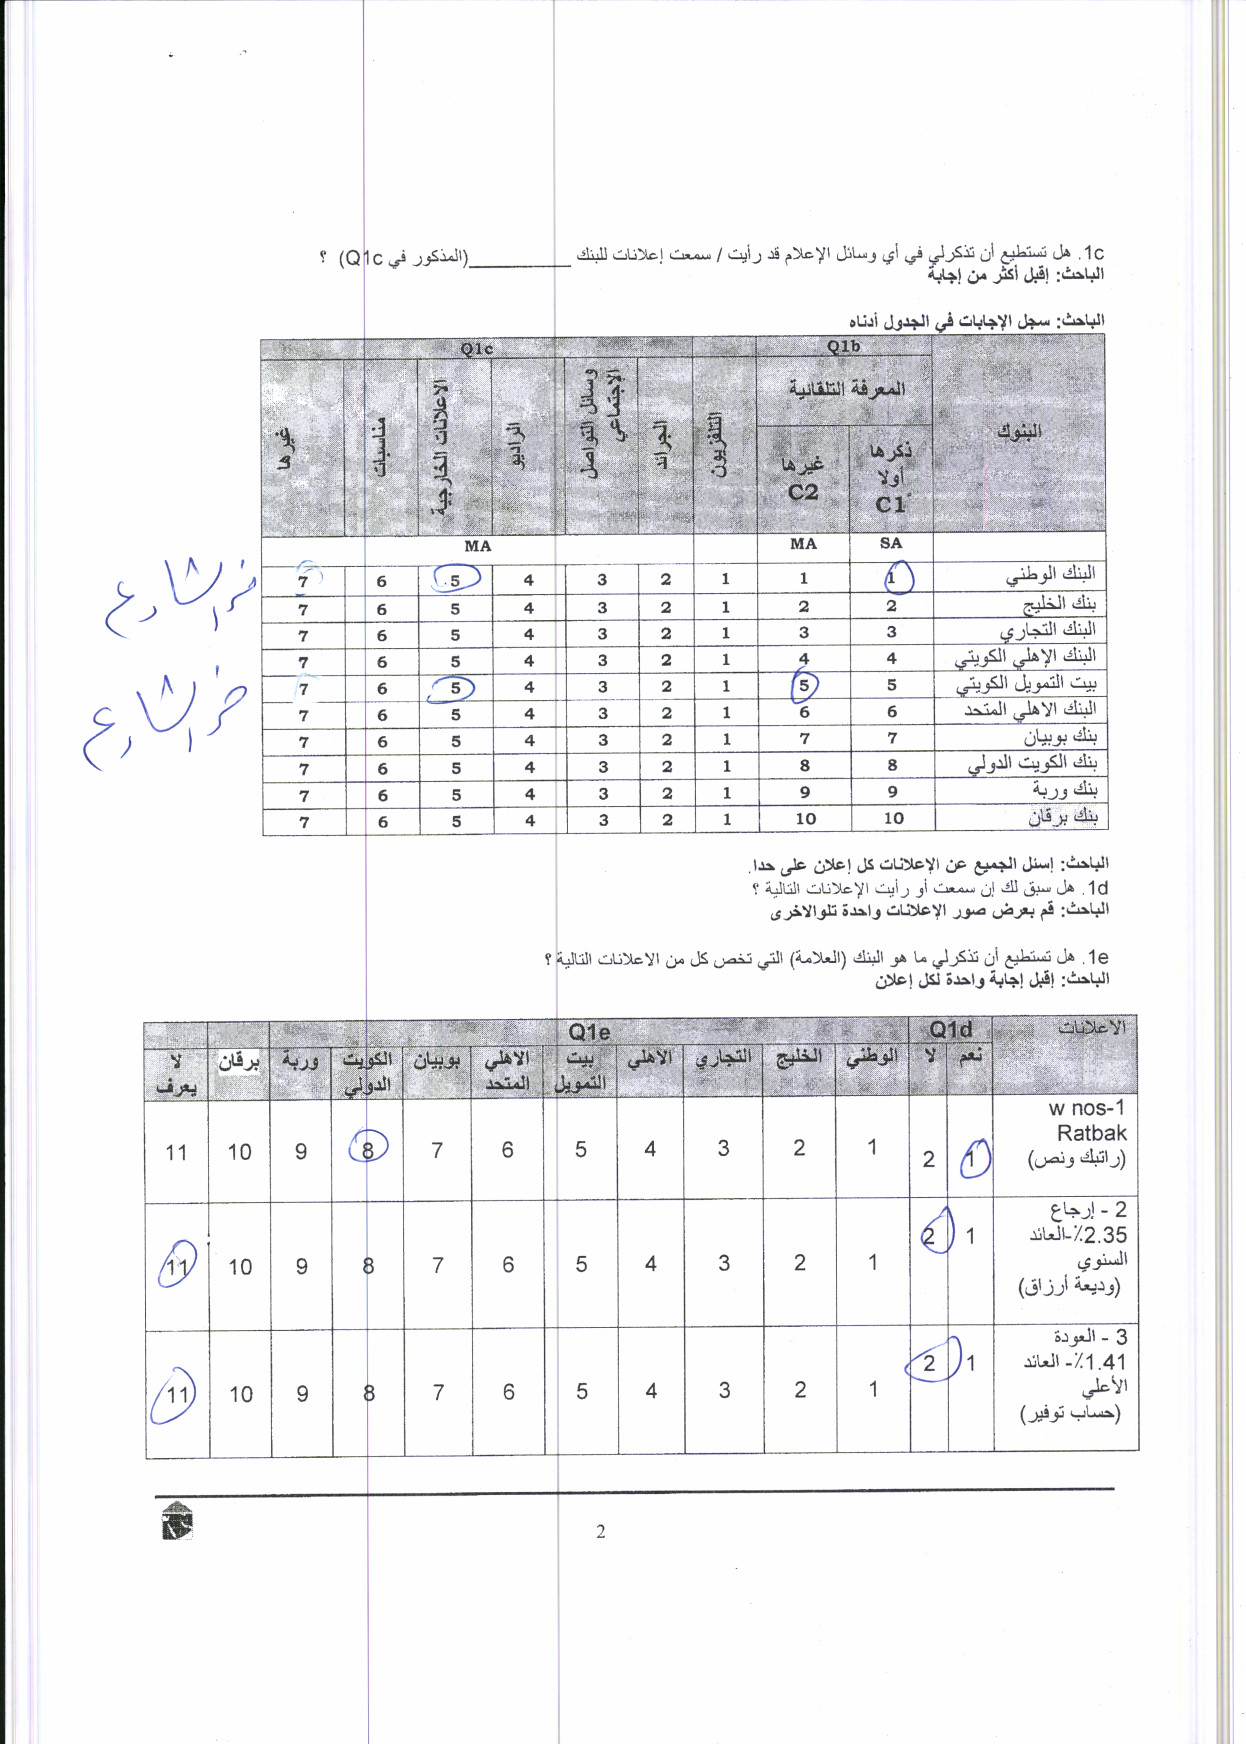 1c. هل تستطيع أن تذكرلي في أي وسائل الإعلام قد رأيت / سمعت إعلانات للبنك ____________(المذكور في Q1c) ؟
الباحث: إقبل أكثر من إجابة
الباحث: سجل الإجابات في الجدول أدناه
البنوك Q1b Q1c
المعرفة التلقائية التلفزيون الجرائد وسائل التواصل الإجتماعي الراديو الاعلانات الخارجية مناسبات غيرها
ذكرها أولا C1 غيرها C2
SA MA MA
البنك الوطني 1 1 1 2 3 4 5 6 7
بنك الخليج 2 2 1 2 3 4 5 6 7
البنك التجاري 3 3 1 2 3 4 5 6 7
البنك الاهلي الكويتي 4 4 1 2 3 4 5 6 7
بيت التمويل الكويتي 5 5 1 2 3 4 5 6 7
البنك الاهلي المتحد 6 6 1 2 3 4 5 6 7
بنك بوبيان 7 7 1 2 3 4 5 6 7
بنك الكويت الدولي 8 8 1 2 3 4 5 6 7
بنك وربة 9 9 1 2 3 4 5 6 7
بنك برقان 10 10 1 2 3 4 5 6 7
الشارع
الشارع
الباحث: إسئل الجميع عن الإعلانات كل إعلان على حدا.
1d. هل سبق لك ان سمعت أو رأيت الإعلانات التالية ؟
الباحث: قم بعرض صور الإعلانات واحدة تلوالاخرى
1e. هل تستطيع أن تذكرلي ما هو البنك (العلامة) التي تخص كل من الاعلانات التالية ؟
الباحث: إقبل إجابة واحدة لكل إعلان
الاعلانات Q1d Q1e
نعم لا الوطني الخليج التجاري الاهلي بيت التمويل الاهلي المتحد بوبيان الكويت الدولي وربة برقان لا يعرف
w nos-1
Ratbak
(راتبك ونص) 1 2 1 2 3 4 5 6 7 8 9 10 11
2 - إرجاع
2.35٪-العائد
السنوي
(وديعة أرزاق) 1 2 1 2 3 4 5 6 7 8 9 10 11
3 - العودة
1.41٪- العائد
الأعلي
(حساب توفير) 1 2 1 2 3 4 5 6 7 8 9 10 11
2